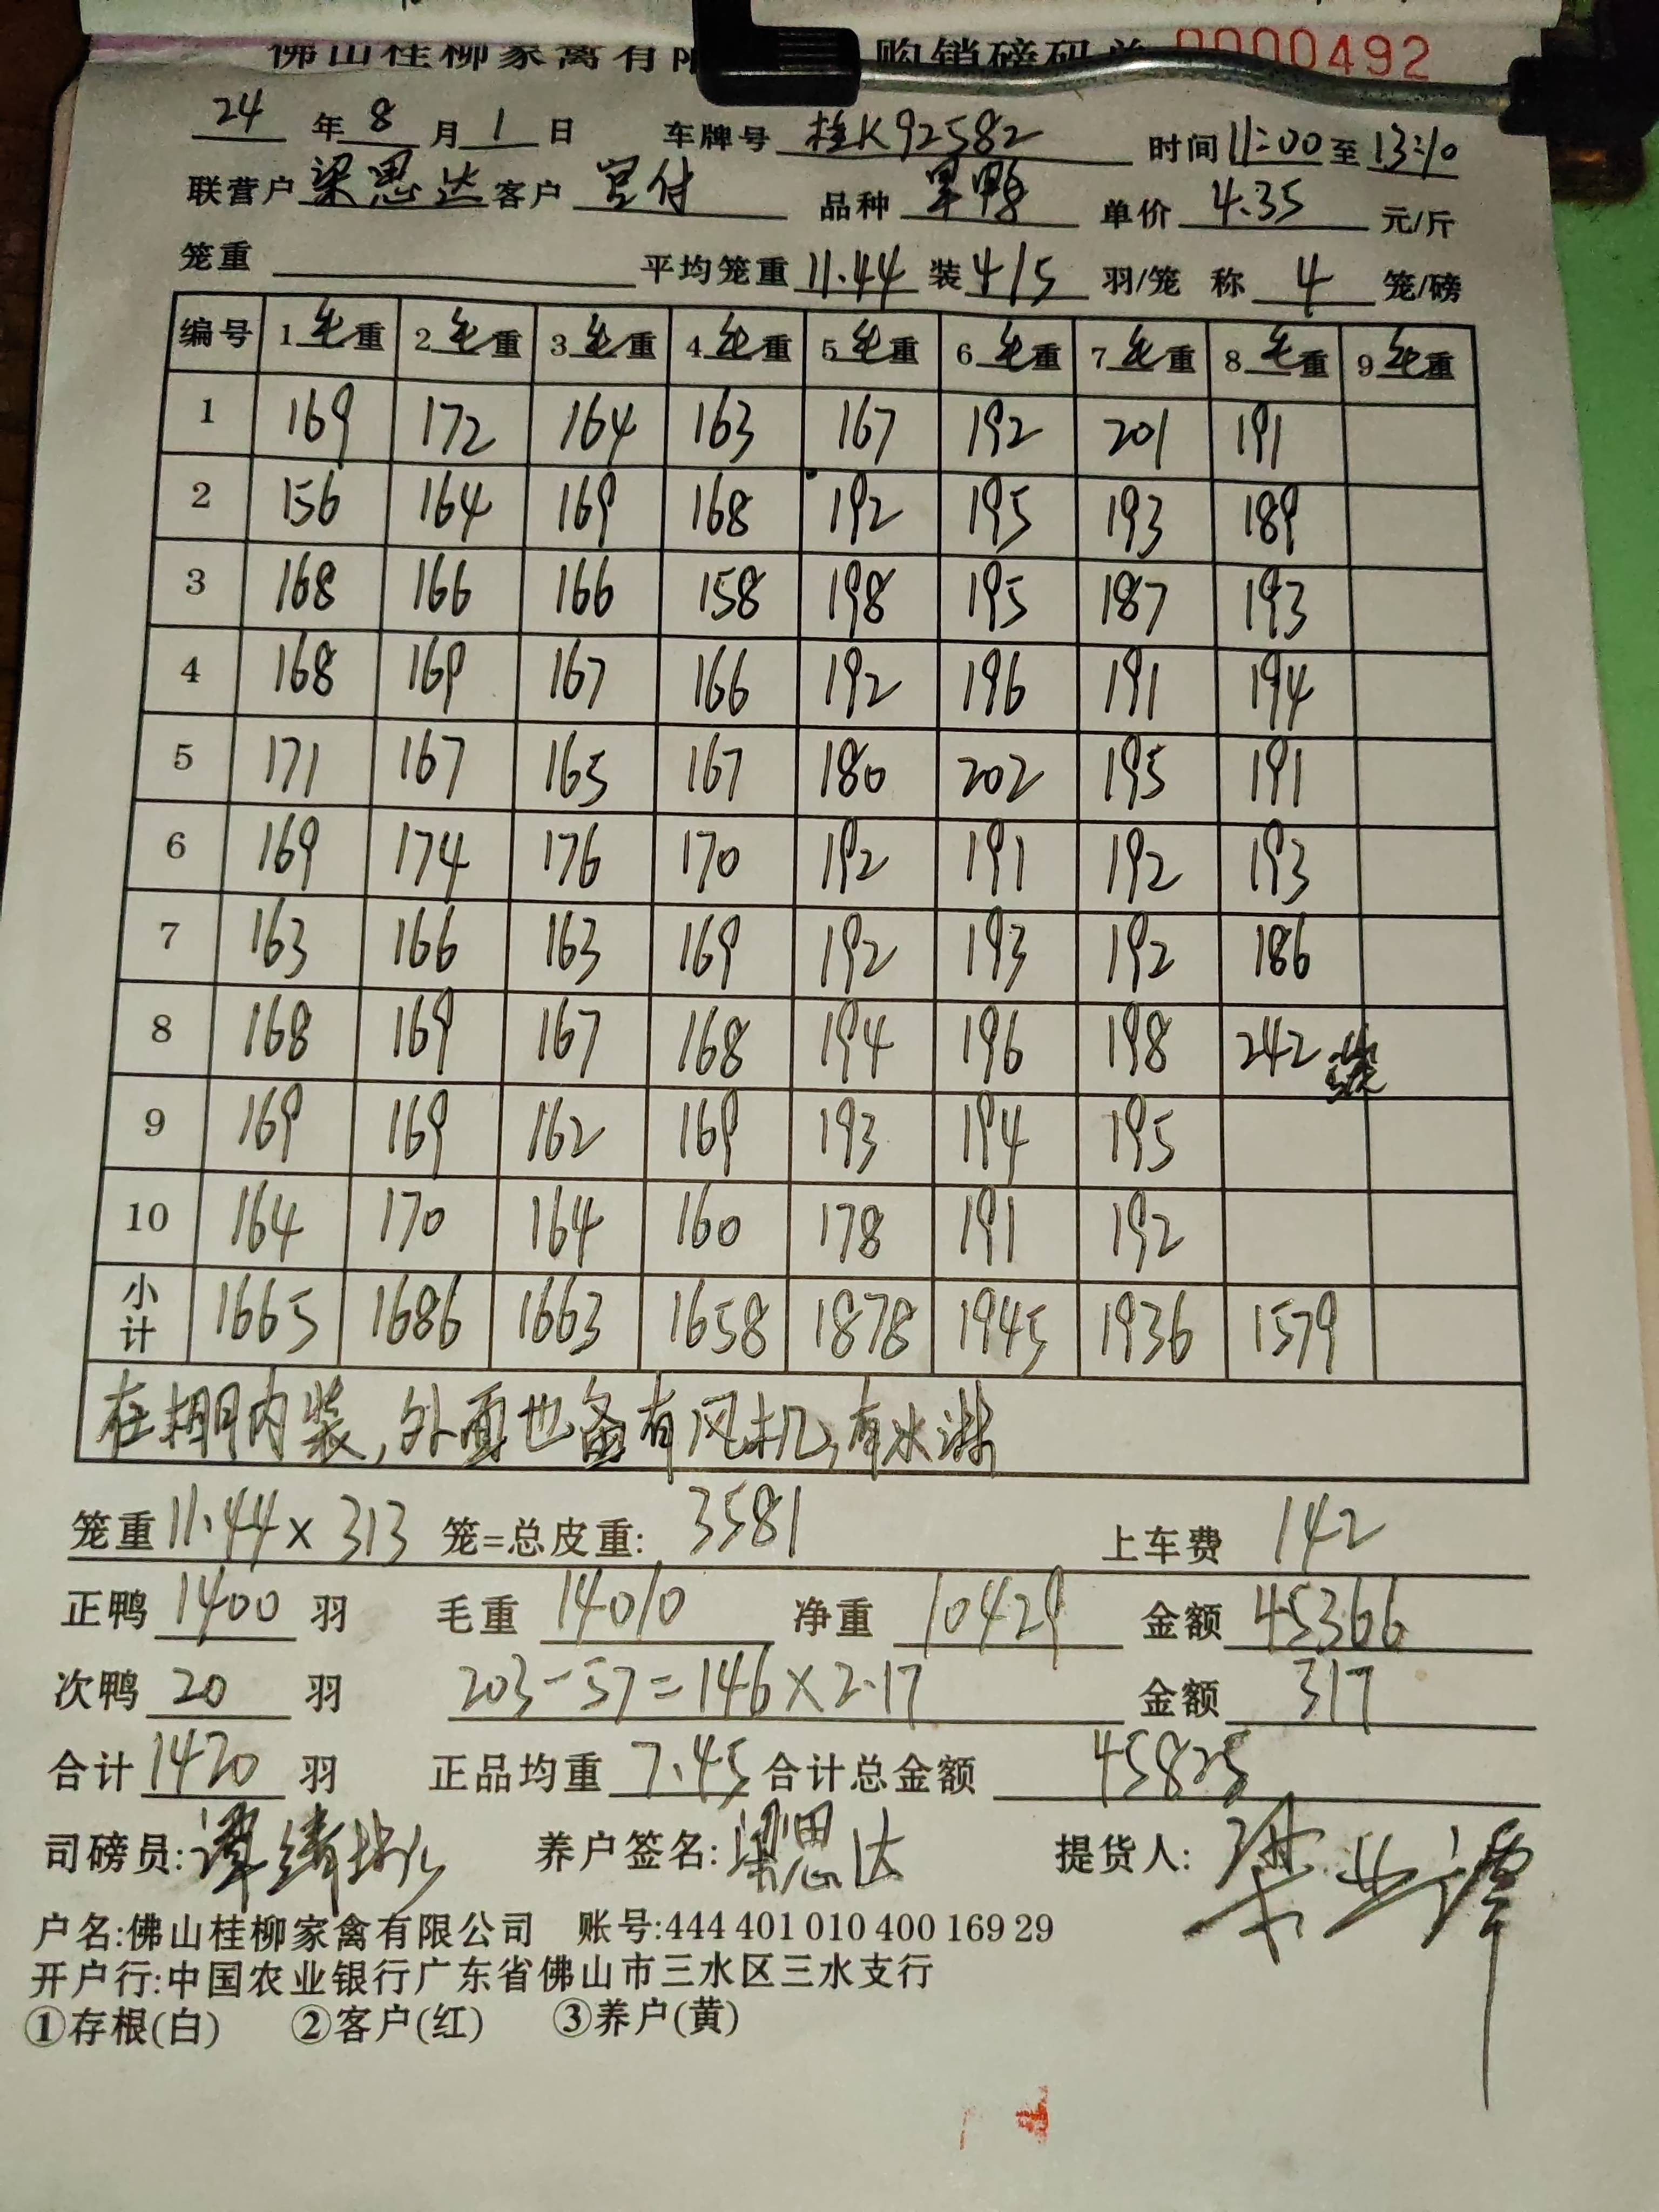 佛山桂柳家禽有限 购销磅码单 0000492
24 年 8 月 1 日 车牌号 桂K92582 时间 11:00 至 13:10
联营户 梁思达 客户 宝付 品种 单价 4.35 元/斤
笼重 平均笼重 11.44 装 4/5 羽/笼 称 4 笼/磅
编号 1 毛重 2 毛重 3 毛重 4 毛重 5 毛重 6 毛重 7 毛重 8 毛重 9 毛重
1 169 172 164 163 167 192 201 191
2 156 164 169 168 192 195 193 189
3 168 166 166 158 198 195 187 193
4 168 169 167 166 192 196 191 194
5 171 167 165 167 180 202 195 191
6 169 174 176 170 192 191 192 193
7 163 166 163 169 192 193 192 186
8 168 169 167 168 194 196 198 242
9 169 169 162 169 193 194 195
10 164 170 164 160 178 191 192
小计 1665 1686 1663 1658 1878 1945 1936 1579
在棚内装,外面也备有风机,有水淋
笼重 11.44 × 313 笼=总皮重: 3581 上车费 142
正鸭 1400 羽 毛重 14010 净重 10429 金额 45366
次鸭 20 羽 203-57=146×2.17 金额 317
合计 1420 羽 正品均重 7.45 合计总金额 45825
司磅员: 养户签名: 梁思达 提货人:
户名:佛山桂柳家禽有限公司 账号:444 401 010 400 169 29
开户行:中国农业银行广东省佛山市三水区三水支行
①存根(白) ②客户(红) ③养户(黄)